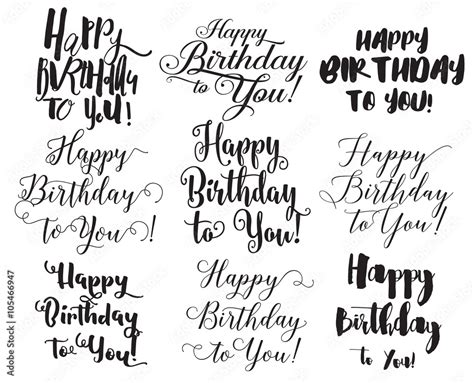 Happy
Birthday
to You!
Happy
Birthday
to You!
HAPPY
BIRTHDAY
TO YOU!
Happy
Birthday
to You!
Happy
Birthday
to You!
Happy
Birthday
to You!
Happy
Birthday
To You!
Happy
Birthday
to You!
Happy
Birthday
to You!
Adobe Stock | #105466947